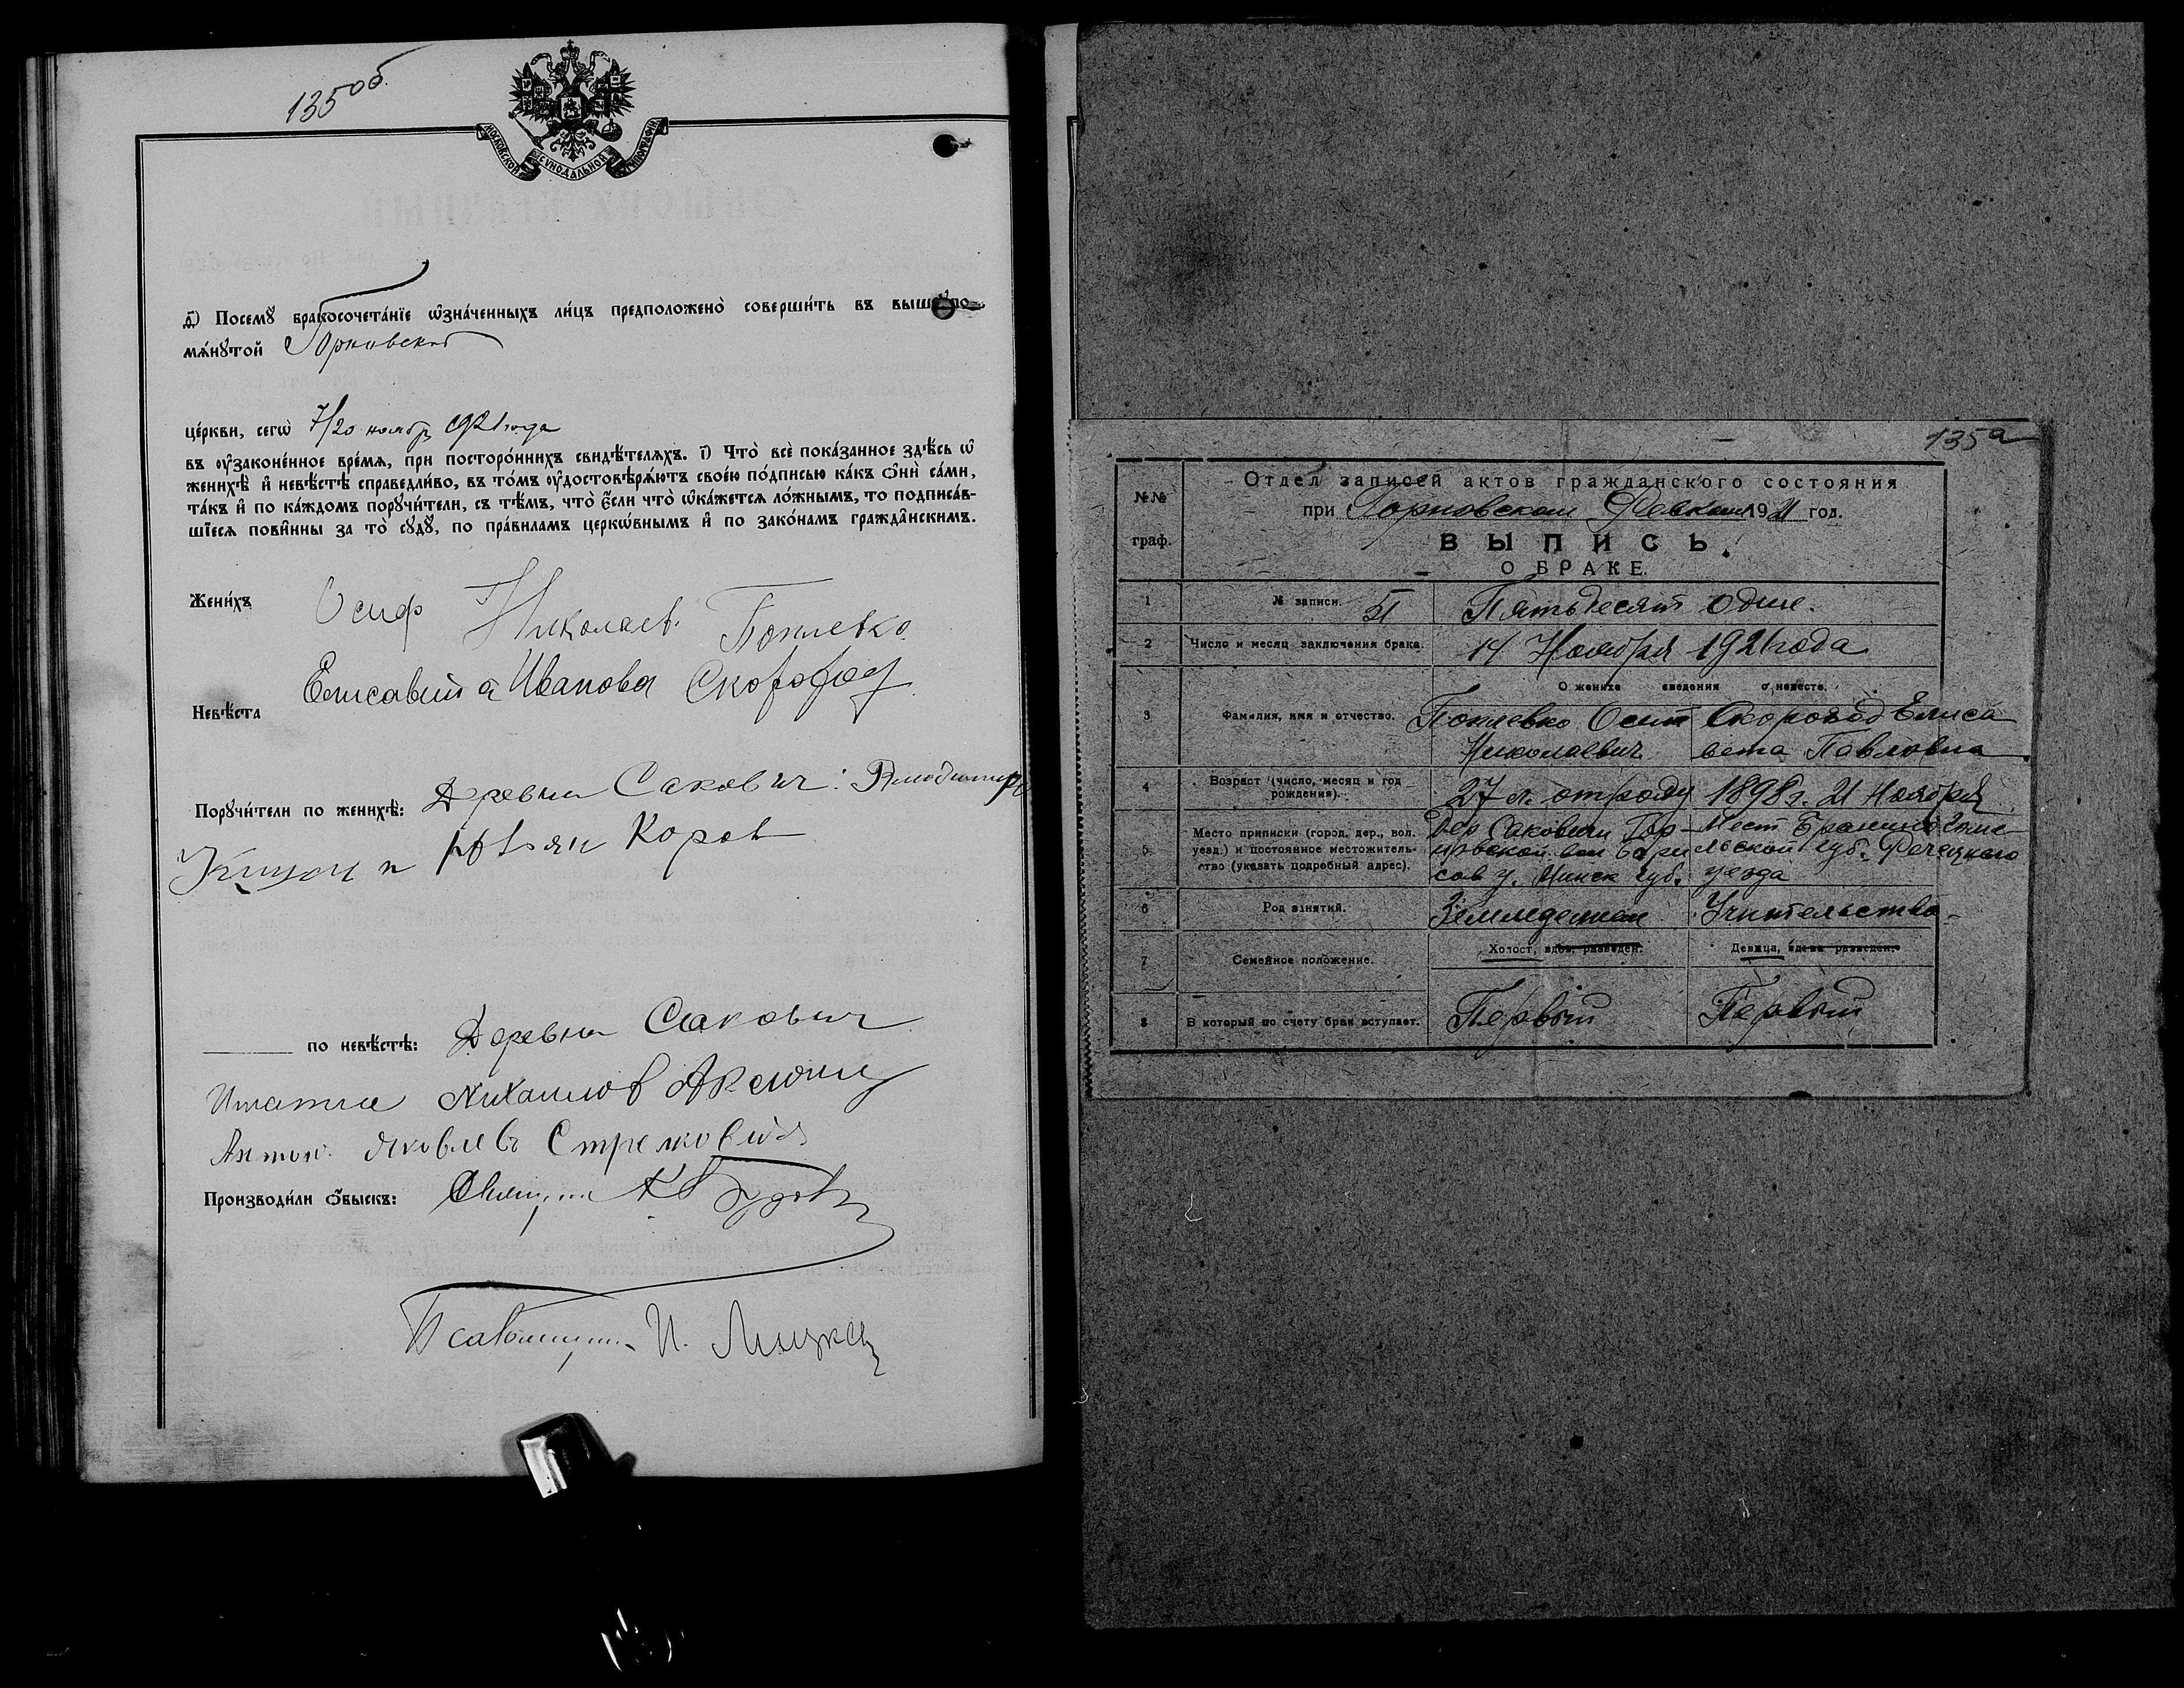 135об.
МОСКОВСКОЙ СѴНОДАЛЬНОЙ ТИПОГРАФІИ
д҃) Посемꙋ̀ бракосочета́нїе ѡ҆зна́ченныхъ ли́цъ предположено̀ соверши́ть въ вышеꙋпо-
мѧ́нꙋтой Горновской
це́ркви, сегѡ̀ 7/20 ноябр 1921 года
въ ᲂу҆зако́ненное вре́мѧ, при посторо́ннихъ свидѣ́телѧхъ. і҃) Что̀ всѐ пока́занное здѣ́сь ѡ҆
женихѣ̀ и҆ невѣ́стѣ справедли́во, въ то́мъ ᲂу҆достовѣрѧ́ютъ свое́ю по́дписью ка́къ ѻ҆нѝ са́ми,
та́къ и҆ по ка́ждомъ порꙋчи́тели, съ тѣ́мъ, что̀ є҆́сли что̀ ѡ҆ка́жетсѧ ло́жнымъ, то подписа́в-
шїесѧ пови́нны за то̀ сꙋдꙋ̀, по пра́вилamъ церкѡ́внымъ и҆ по зако́намъ гражда́нскимъ.
Жени́хъ Осиф Николаев. Поплевко
Невѣ́ста Елисавита Иванова Скороход
Порꙋчи́тели по женихѣ̀: Деревни Сакович: Владимир
Коров
по невѣ́стѣ: Деревни Сакович
Игнатие Михаилов Аксючиц
Антон Яковлевъ
Производи́ли ѻ҆́быскъ: Священ.
Псаломщик И.
135а
№№ граф.
Отдел записей актов гражданского состояния
при Горновском Ревком 1921 год.
ВЫПИСЬ.
О БРАКЕ.
1 № записи. 51 Пятьдесят один.
2 Число и месяц заключения брака. 14 Ноября 1921 года
О женихе сведения о невесте.
3 Фамилия, имя и отчество. Поплевко Осип Скороход Елиса
Николаевич вета Павловна
4 Возраст (число, месяц и год рождения). 27 л. отроду 1898 г. 21 Ноября
5 Место приписки (город, дер., вол. Дер Саковичи Гор- Мест Брагин Гоме-
уезд.) и постоянное местожитель- новской вол Бори льской губ. Речецкаго
ство (указать подробный адрес). сов у. Минск губ. уезда
6 Род занятий. Земледелием Учительство
7 Семейное положение. Холост, вдов, разведен. Девица, вдова разведен.
8 В который по счету брак вступает. Первый Первый